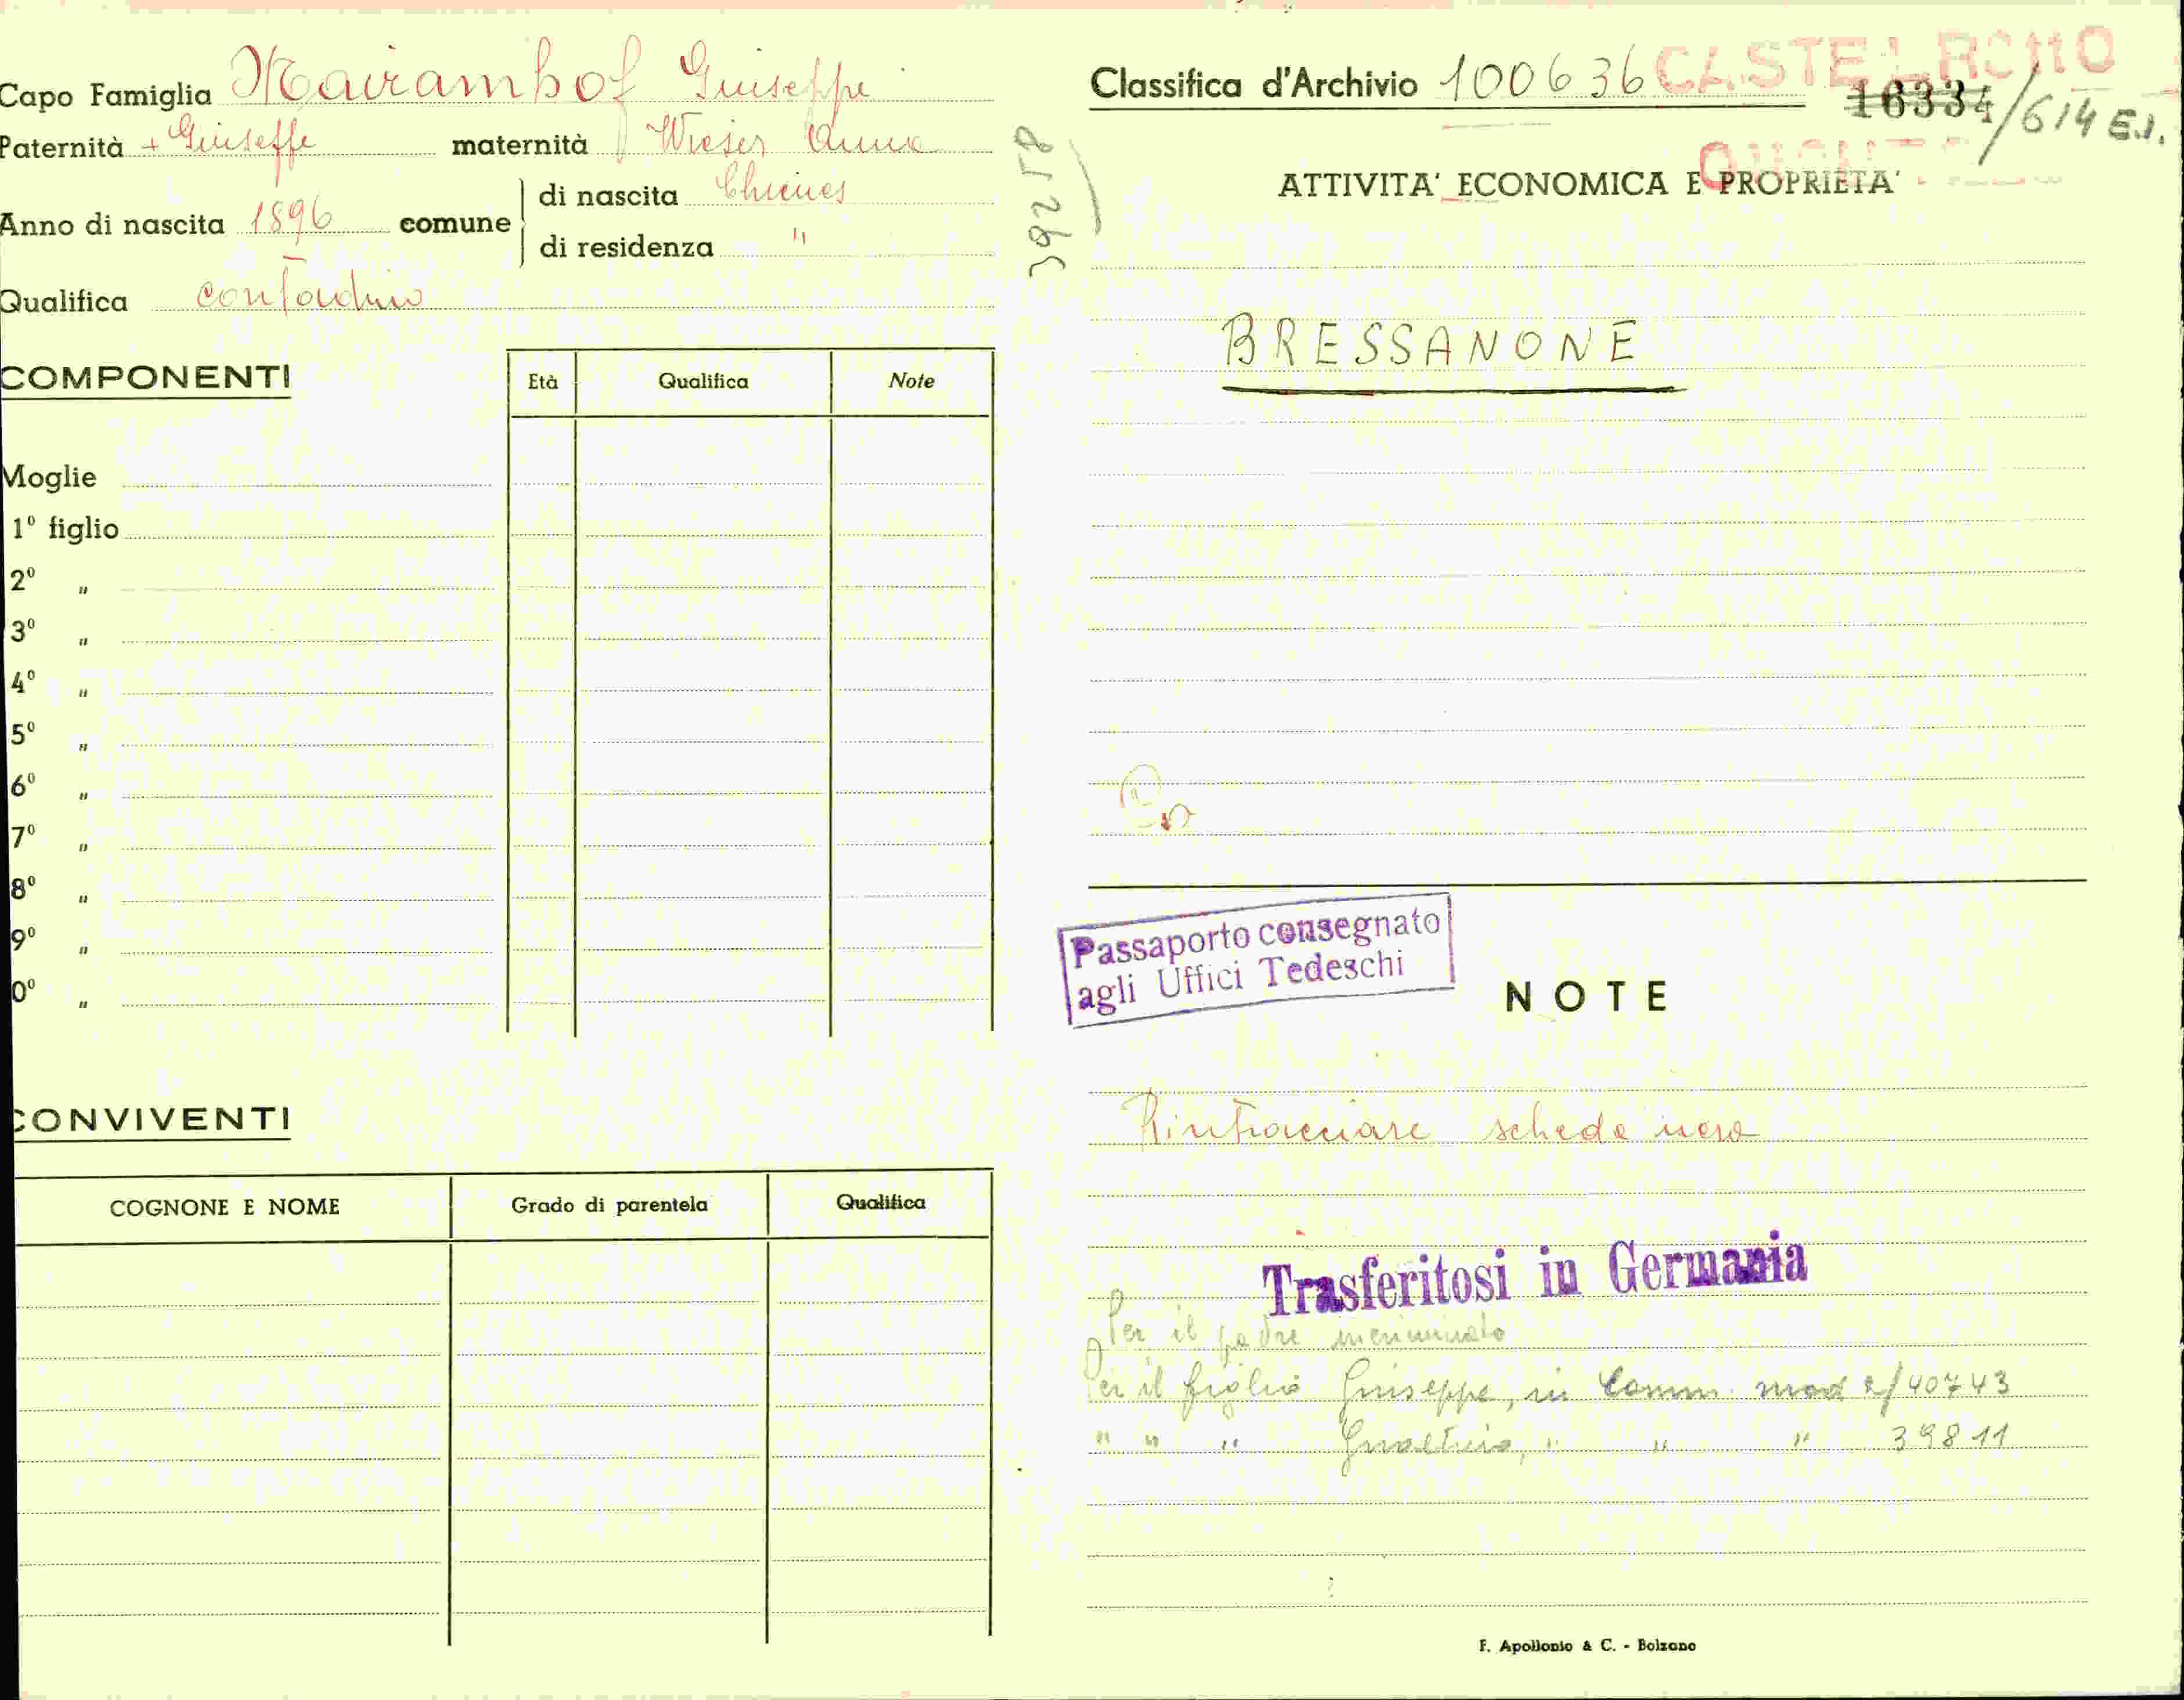 Capo Famiglia Mairamhof Giuseppe
Paternità + Giuseppe maternità Wieser Anna
Anno di nascita 1896 comune di nascita Chienes
di residenza "
Qualifica contadino
COMPONENTI
Età Qualifica Note
Moglie
1º figlio
2º "
3º "
4º "
5º "
6º "
7º "
8º "
9º "
0º "
CONVIVENTI
COGNONE E NOME Grado di parentela Qualifica
39258
Classifica d'Archivio 100636 CASTELROMO
16334/614 E.I.
ATTIVITA' ECONOMICA E PROPRIETA'
BRESSANONE
Passaporto consegnato
agli Uffici Tedeschi
NOTE
Rintracciare scheda nera
Trasferitosi in Germania
Per il padre incriminato
Per il figlio Giuseppe, in Comm. mod 2/40743
" " " Gualtiero, " " " 39811
F. Apollonio & C. - Bolzano